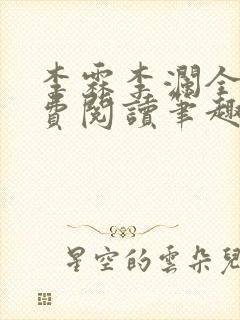 李霖李瀾全
費閱讀筆趣
星空的雲朵兒